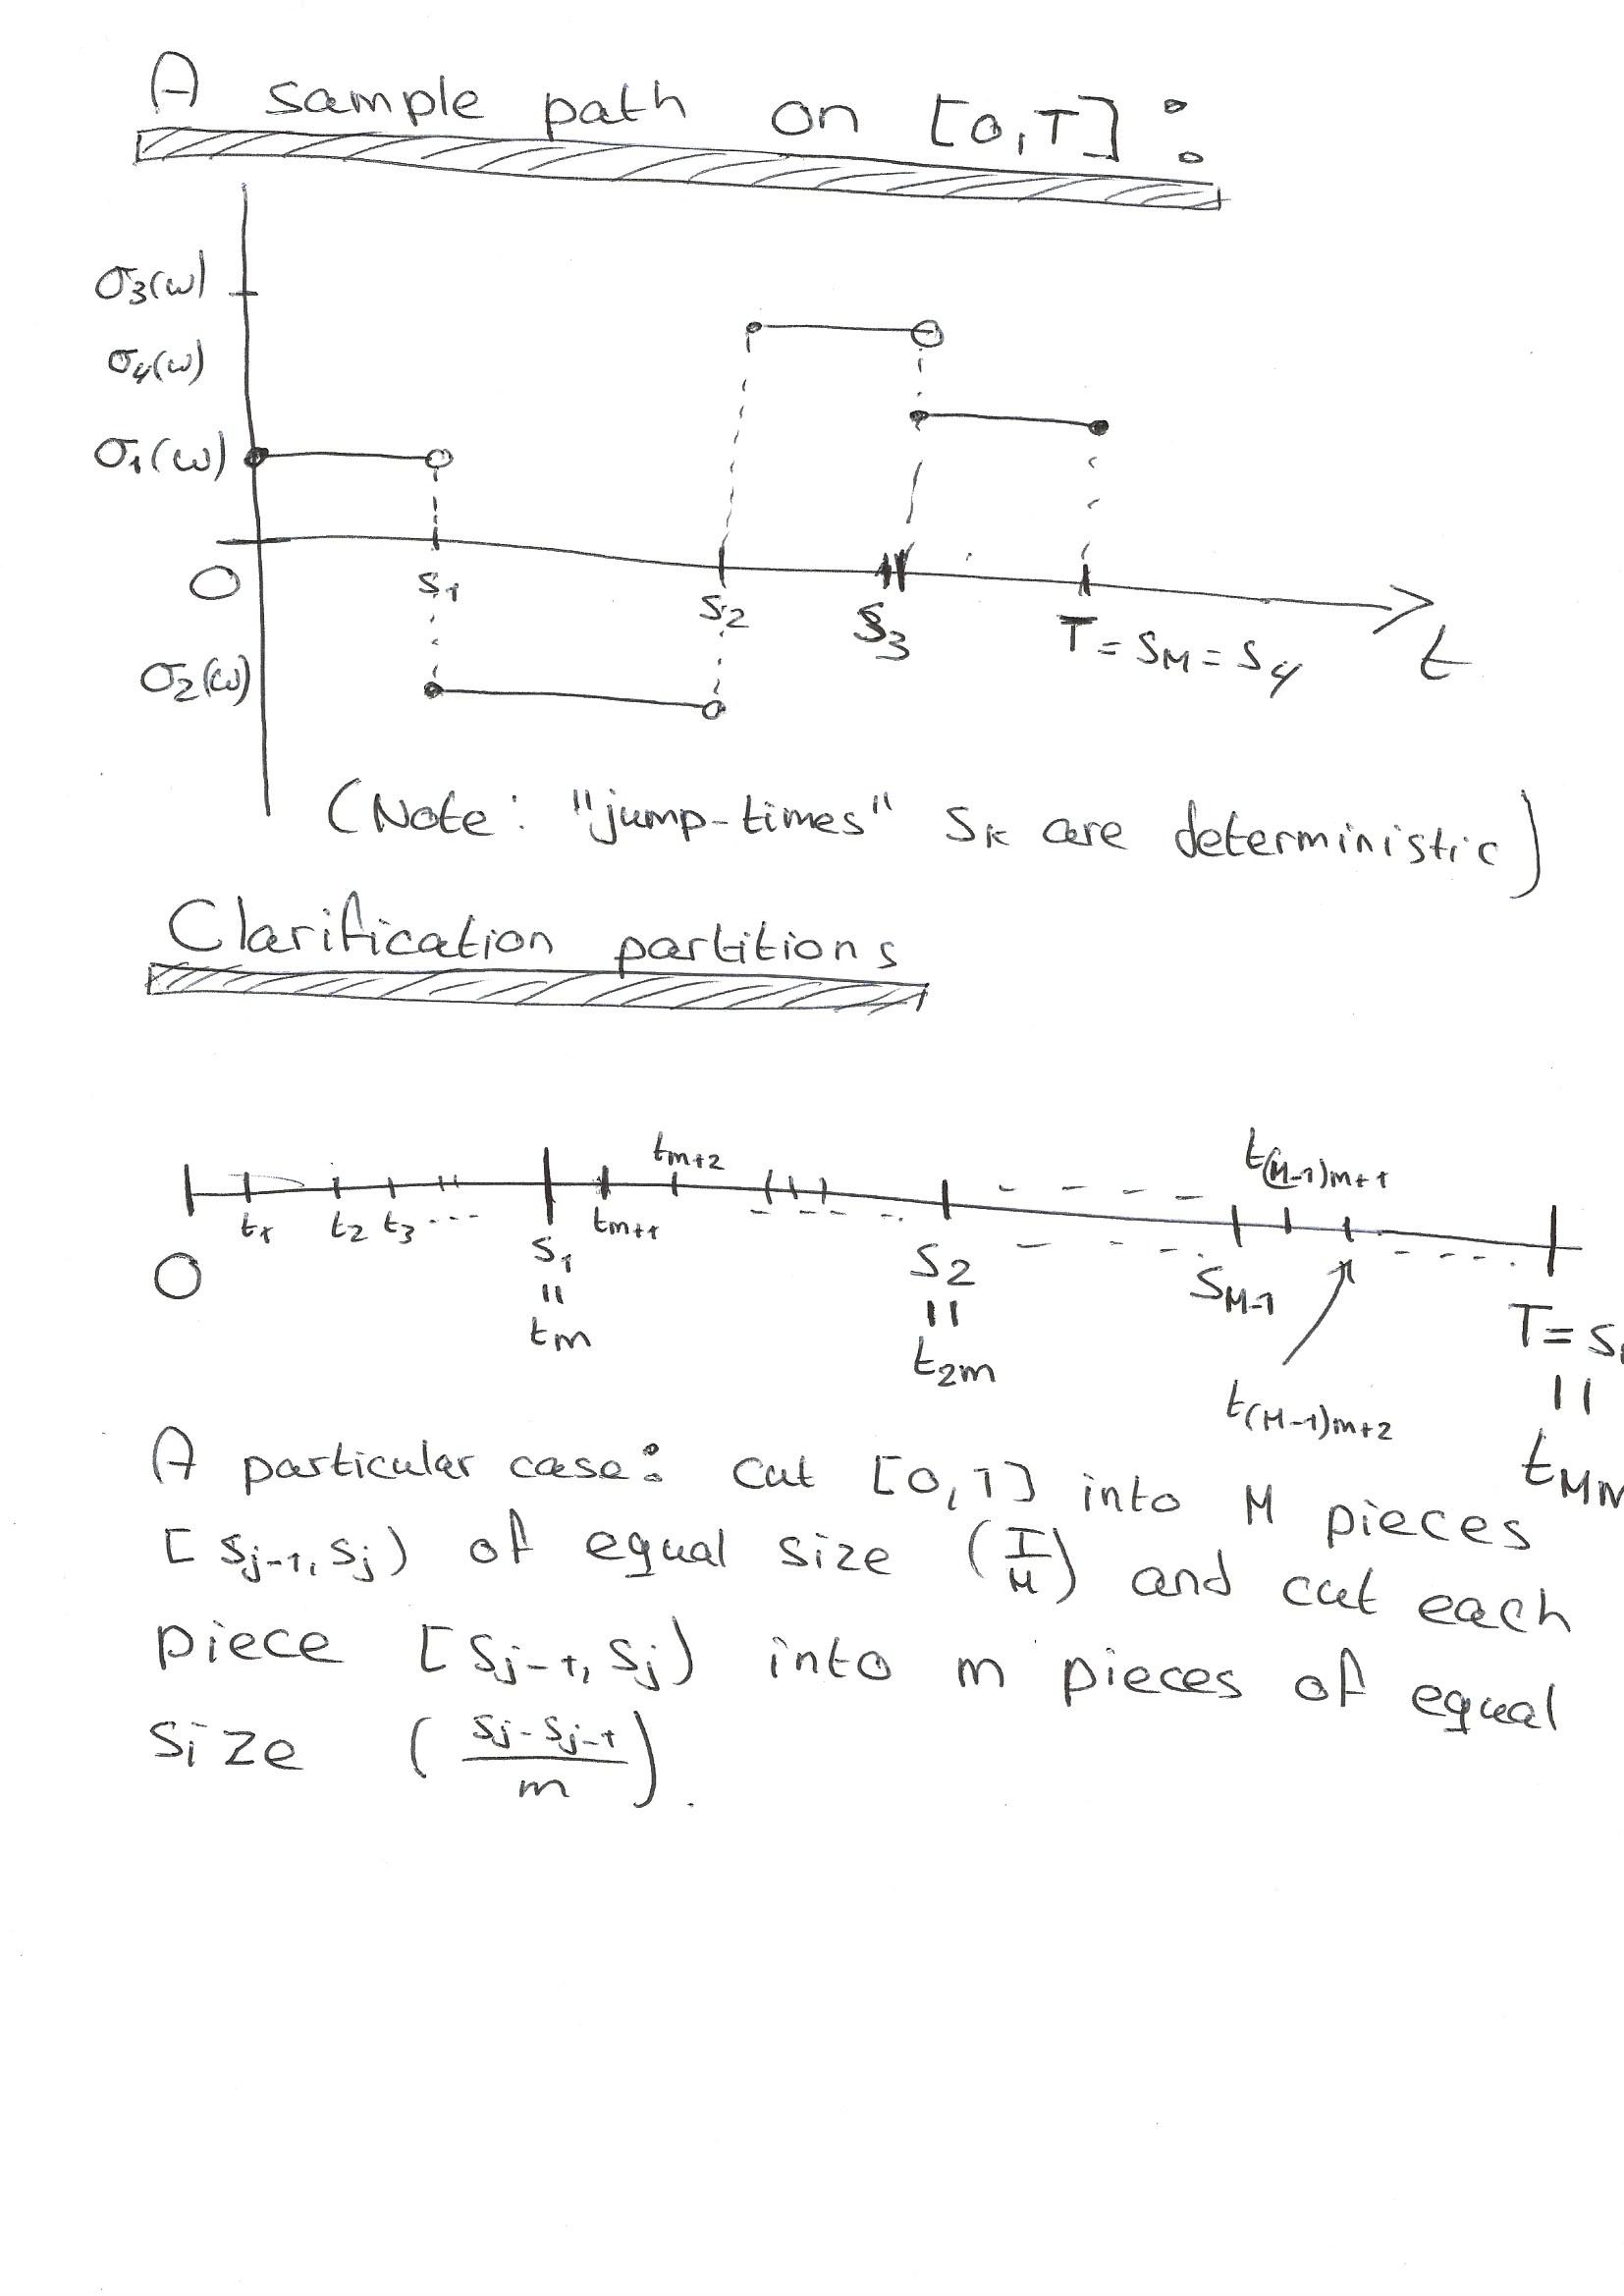 A sample path on [0,T]:
σ3(ω)
σ4(ω)
σ1(ω)
0 s1 s2 s3 T = sM = s4 t
σ2(ω)
(Note: "jump-times" sk are deterministic)
Clarification partitions
tm+2 t(M-1)m+1
t1 t2 t3 ... tm+1
0 s1 s2 sM-1 T = s
= = =
tm t2m t(M-1)m+2 tMm
A particular case: cut [0,T] into M pieces
[sj-1, sj) of equal size (T/M) and cut each
piece [sj-1, sj) into m pieces of equal
size ((sj - sj-1)/m).